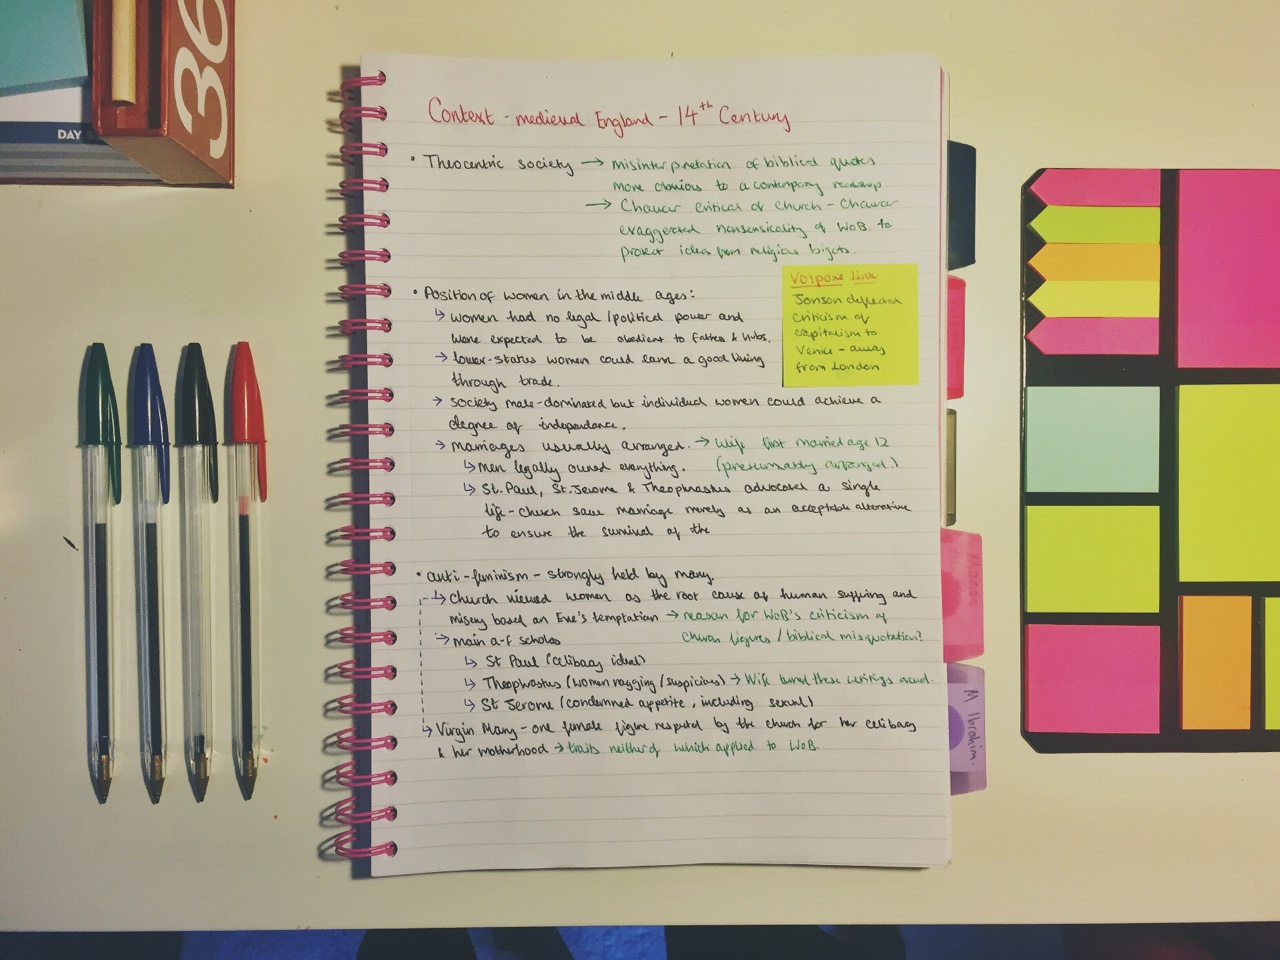 36
DAY
Context - medieval England - 14th Century
• Theocentric society → misinterpretation of biblical quotes
more obvious to a contempory readership.
→ Chaucer critical of church - Chaucer
exaggerated nonsensicality of WoB to
protect ideas from religious bigots.
• Position of women in the middle ages:
↳ women had no legal / political power and
were expected to be obedient to fathers & hubs.
→ lower-status women could earn a good living
through trade.
→ society male-dominated but individual women could achieve a
degree of independance.
→ Marriages usually arranged. → Wife first married age 12
↳ Men legally owned everything. (presumably arranged.)
↳ St. Paul, St. Jerome & Theophrastus advocated a single
life - church saw marriage merely as an acceptable alternative
to ensure the survival of the
Volpone link
Jonson deflected
criticism of
capitalism to
Venice - away
from London.
• anti-feminism - strongly held by many.
↳ Church viewed women as the root cause of human suffering and
misery based on Eve's temptation → reason for WoB's criticism of
church figures / biblical misquotation?
→ main a-f scholars
↳ St Paul (celibacy ideal)
↳ Theophrastus (women nagging / suspicious) → Wife burned these writings aloud.
↳ St Jerome (condemned appetite, including sexual)
↳ Virgin Mary - one female figure respected by the church for her celibacy
& her motherhood → traits neither of which applied to WoB.
M Ibrahim.